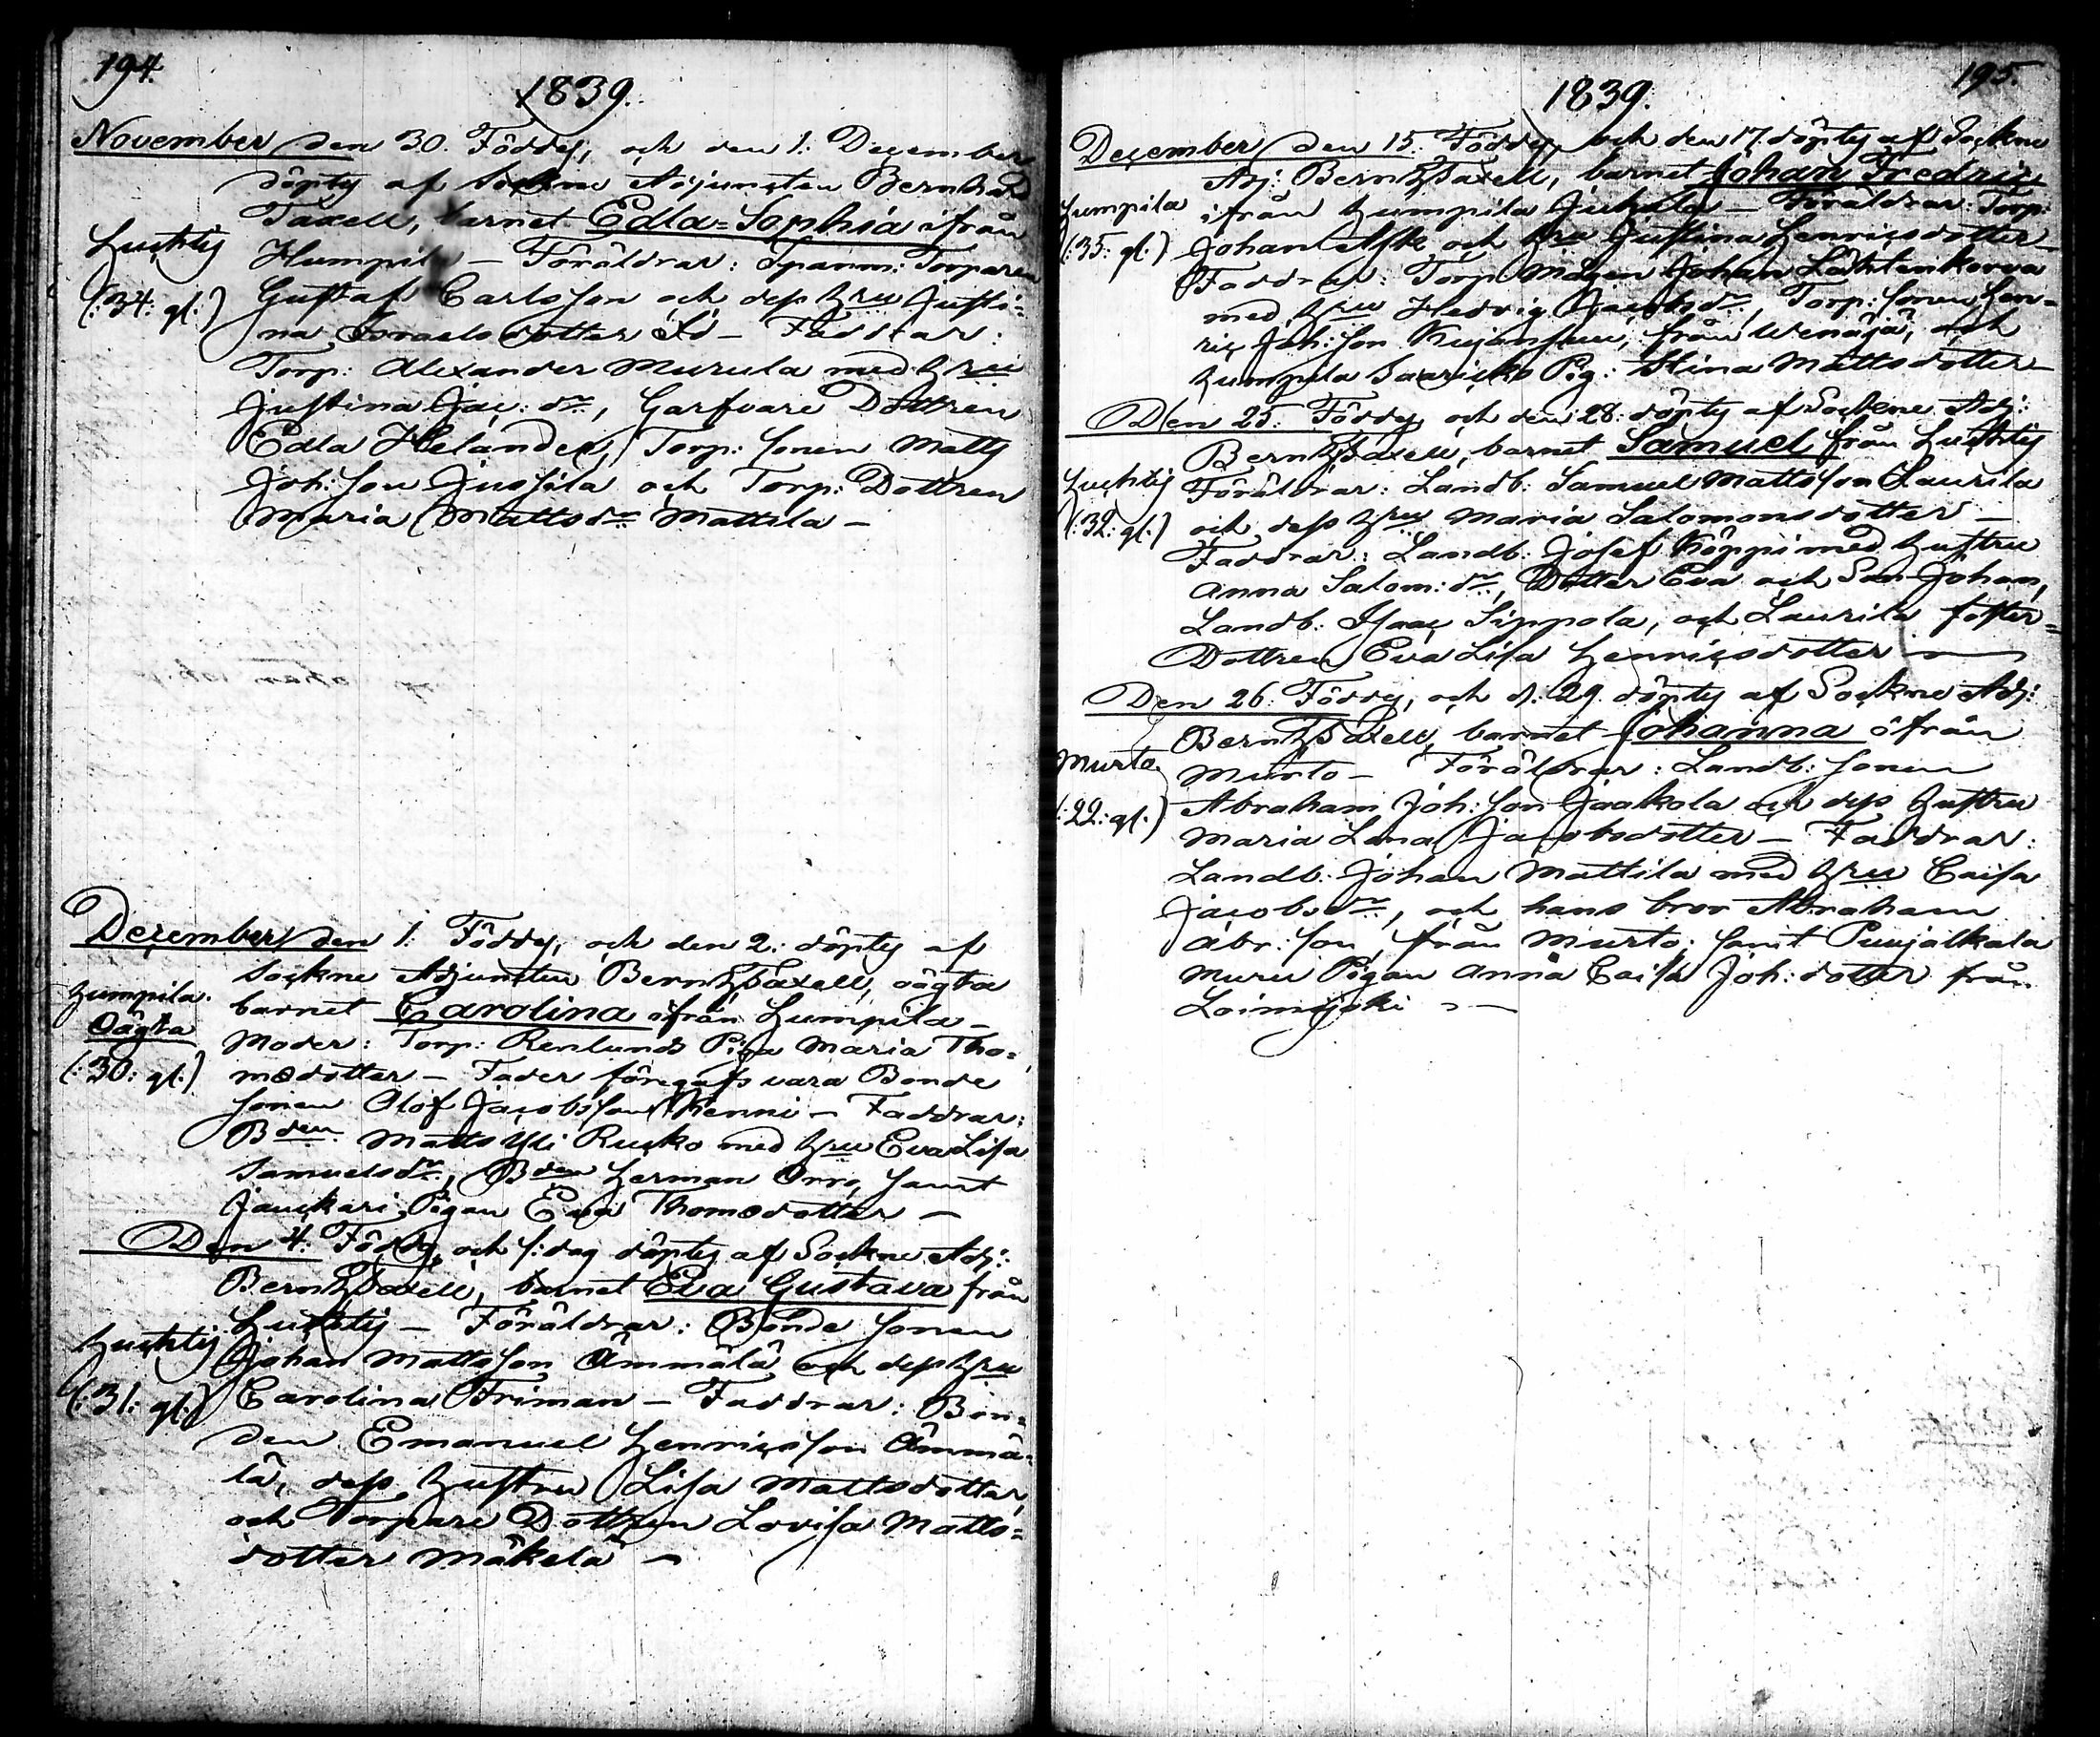 194.
1839.
November den 30. Föddes, och den 1: December
döptes af Sockne Adjuncten Bernhard
Taxell, barnet Edla=Sophia ifrån
Huchtis
Humpila – Föräldrar: Spannm: Torparen
(:34: gl:)
Gustaf Carlsson och dess Hru Justi=
na Israelsdotter – Faddrar:
Torp: Alexander Murula med Hru
Justina Jac: dr, Garfvare Dottren
Edla Helander, Torp: sonen Matts
Joh: son Jussila och Torp: Dottren
Maria Mattsdr Mattila –
December den 1: Föddes, och den 2: döptes af
Sockne Adjuncten Bernh Taxell, oägta
Humpila.
barnet Carolina ifrån Humpila –
Oägta
Moder: Torp: Renlunds Piga Maria Tho=
(:30: gl:)
mædotter – Fader föregafs vara Bonde
sonen Olof Jacobsson Kenni – Faddrar:
Bden Matts Yli Rucko med Hru Eva Lisa
Samuelsdr, Bden Herman Orro, samt
Jauckari Pigan Eva Thomædotter –
Den 4: Föddes, och s: dag döptes af Sockne Adj:
Bernh Taxell, barnet Eva Gustava från
Huchtis – Föräldrar: Bonde sonen
Huchtis
Johan Mattsson Ämmälä och dess Hru
(:31: gl:)
Carolina Friman – Faddrar: Bon=
den Emanuel Henricsson Ämmä=
lä, dess Hustru Lisa Mattsdotter,
och Torpare Dottren Lovisa Matts=
dotter Mäkelä –
195.
1839.
December den 15. Föddes, och den 17. döptes af Sockne
Adj: Bernh Taxell, barnet Johan Fredric
Humpila
ifrån Humpila Juhula – Föräldrar: Torp:
(:35: gl:)
Johan och Hru Justina Henricsdotter –
Faddrar: Torp Mågen Johan Lähtenkorva
med Hru Hedvig Jacobsdr, Torp: sonen Hen=
ric Joh: son Kujanpuu, från Wenäjä, och
Humpila Saaricko Pig: Stina Mattsdotter –
Den 25: Föddes, och den 28: döptes af Sockne Adj:
Bernh Taxell, barnet Samuel från Huchtis
Huchtis
Föräldrar: Landb: Samuel Mattsson Laurila
(:32: gl:)
och dess Hru Maria Salomonsdotter –
Faddrar: Landb: Josef Köppi med Hustru
Anna Salom: dr, Dotter Eva och Son Johan,
Landb: Isaac Sippola, och Laurila foster=
Dottren Eva Lisa Henricsdotter –
Den 26: Föddes, och d: 29. döptes af Sockne Adj:
Bernh Taxell, barnet Johanna ifrån
Murto
Murto – Föräldrar: Landb: sonen
(:22: gl:)
Abraham Joh: son Jaakola och dess Hustru
Maria Lena Jacobsdotter – Faddrar:
Landb: Johan Mattila med Hru Caisa
Jacobsdr, och hans bror Abraham
Abr: son, från Murto: samt Puujalkala
Muru Pigan Anna Caisa Joh: dotter från
Loimijoki –